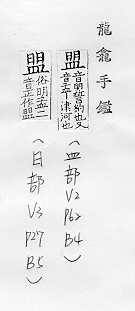 龍龕手鑑
盟
音明誓約也又
音孟津河也
(皿部V2 P62 B4)
盟
俗明孟二
音正作盟
(日部 V3 P27 B5)